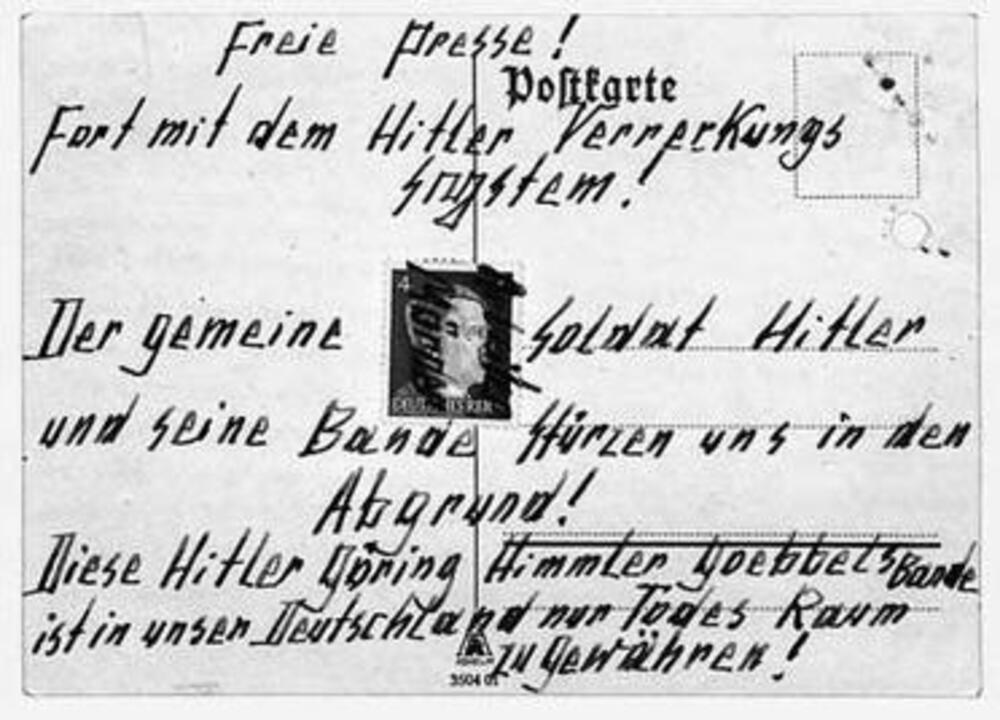 Freie Presse!
Postkarte
Fort mit dem Hitler Verrerkungs
system!
4
Der gemeine Soldat Hitler
und seine Bande stürzen uns in den
Abgrund!
Diese Hitler Göring Himmler Goebbels Bande
ist in unser Deutschland nur Todes Raum
zu gewähren!
3504 01